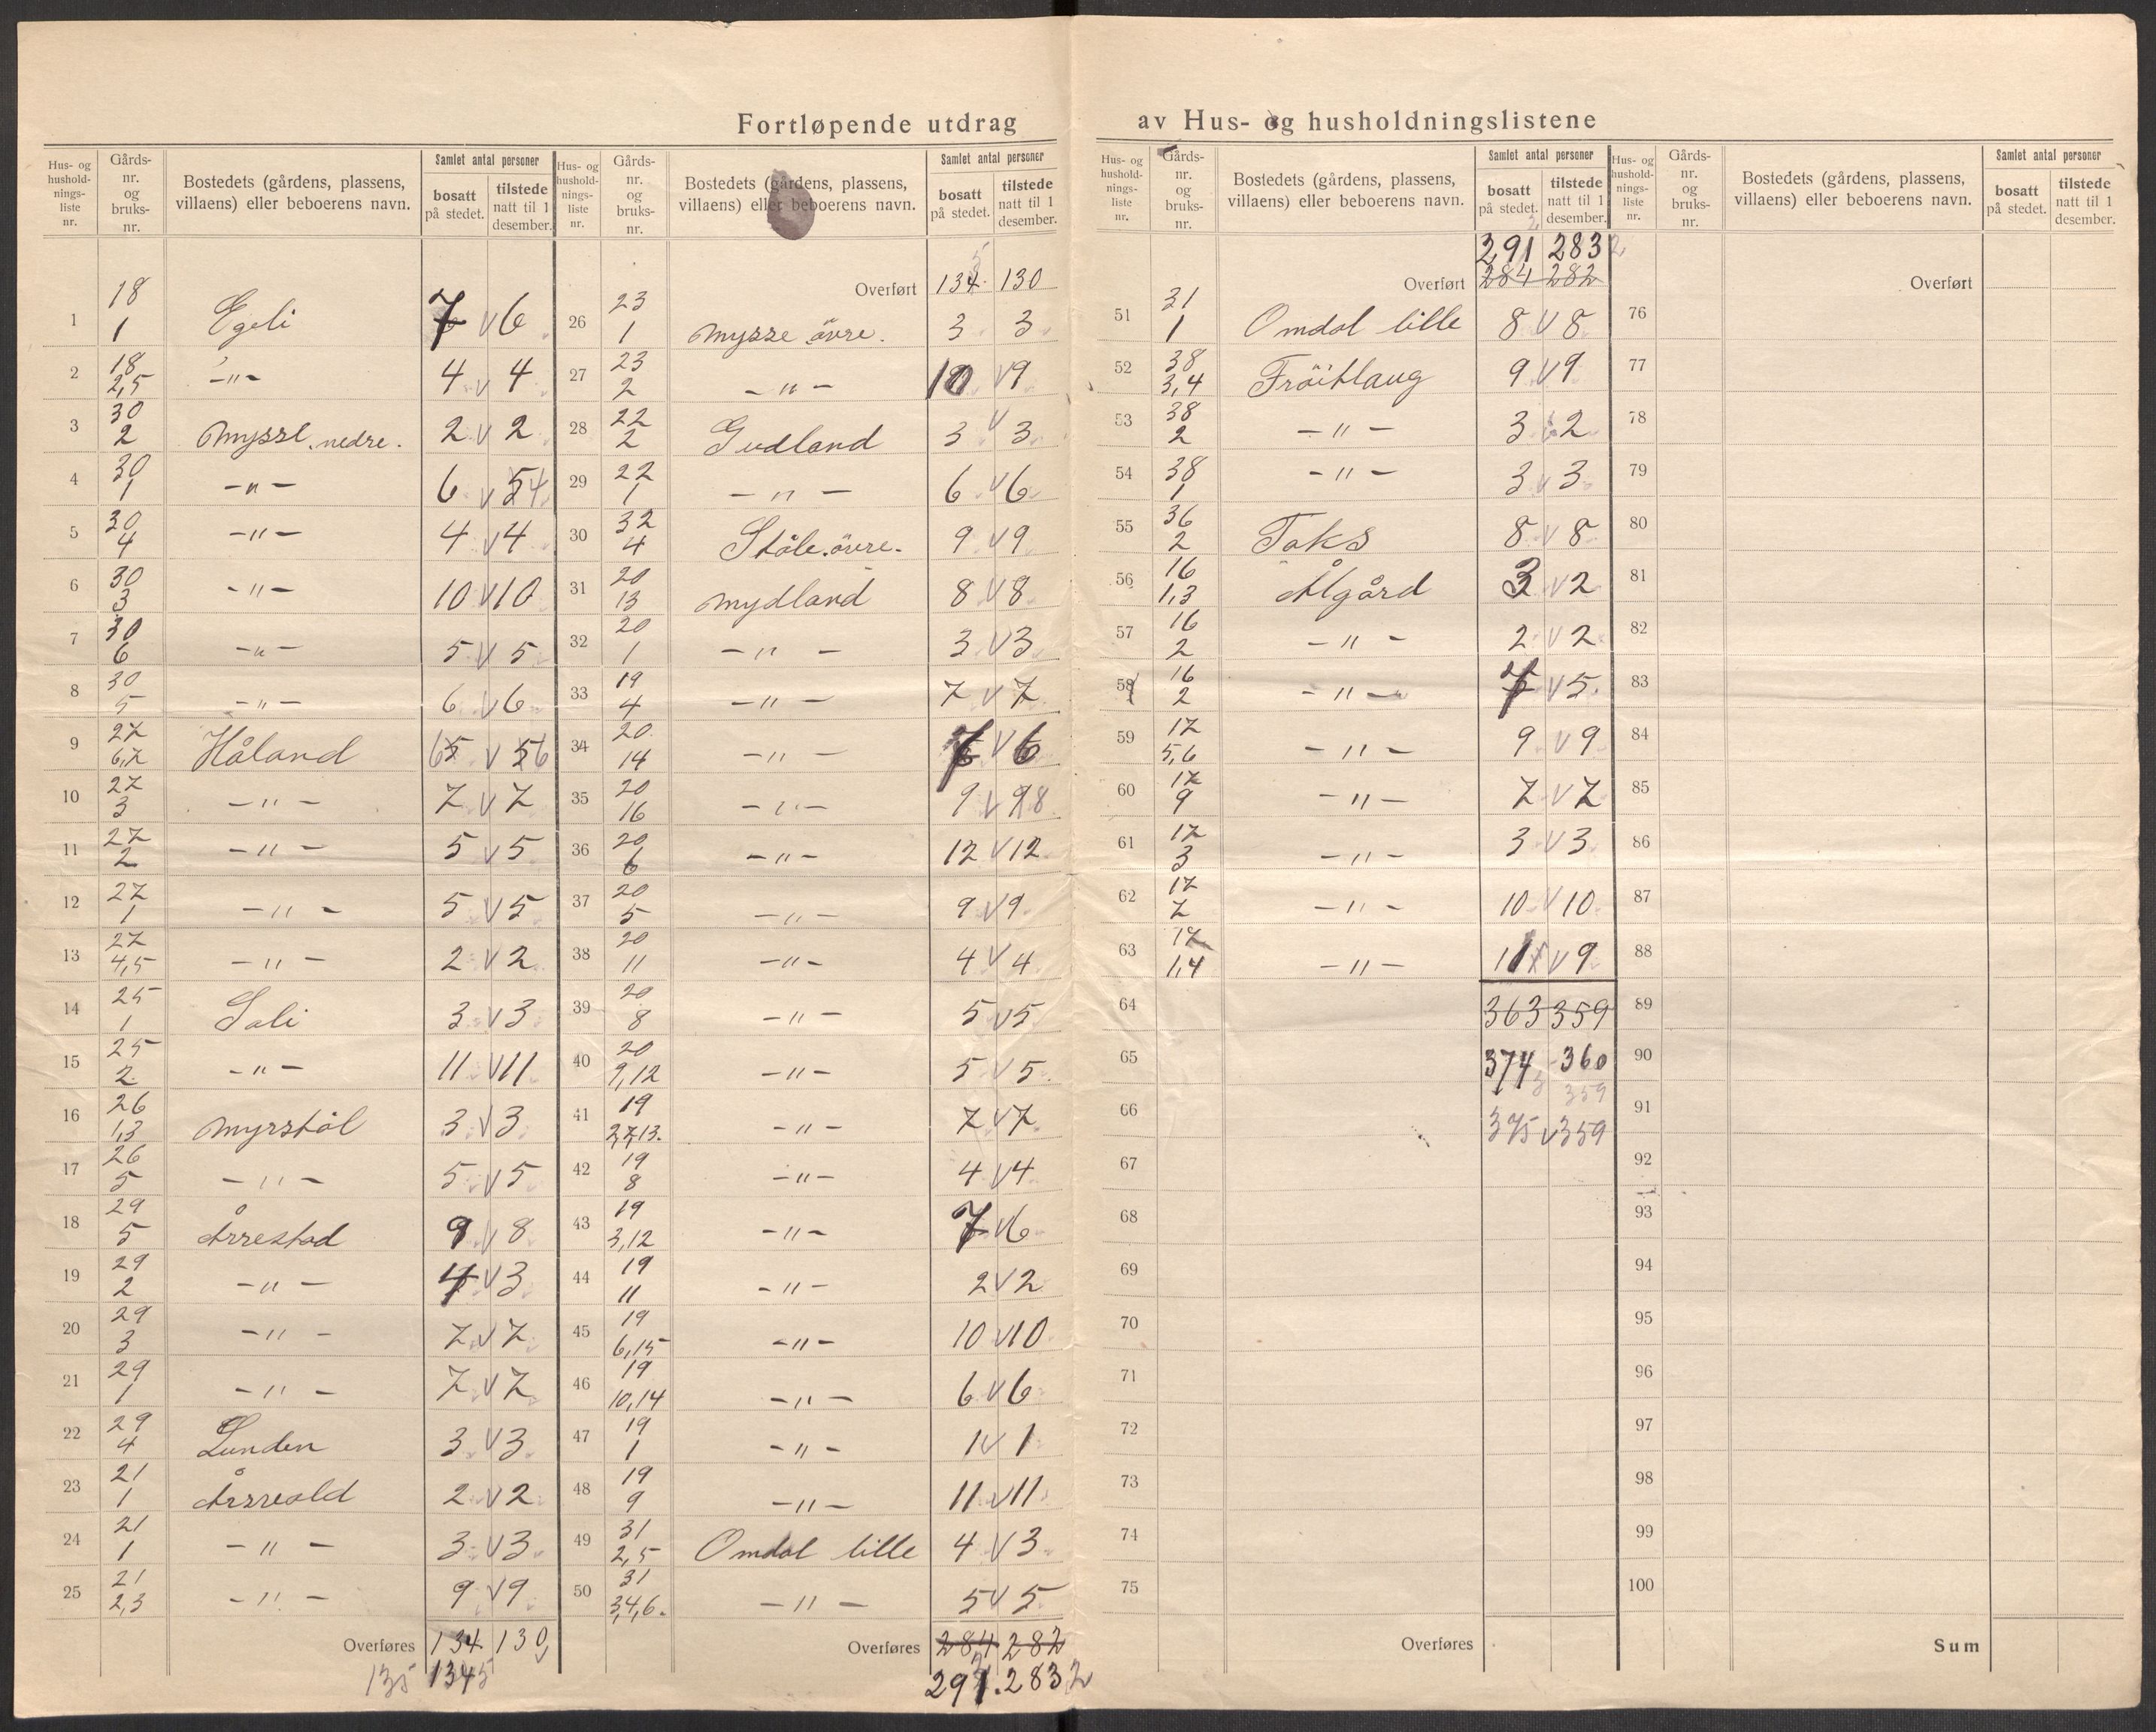 Fortløpende utdrag av Hus- og husholdningslistene
Hus- og hushold-nings-liste nr. | Gårds-nr. og bruks-nr. | Bostedets (gårdens, plassens, villaens) eller beboerens navn. | Samlet antal personer | bosatt på stedet. | tilstede natt til 1 desember.
1 18 1 Egeli 7 v 6
2 18 2,5 -"- 4 v 4
3 30 2 Mysse nedre. 2 v 2
4 30 1 -"- 6 v 5 4
5 30 4 -"- 4 v 4
6 30 3 -"- 10 v 10
7 30 6 -"- 5 v 5
8 30 5 -"- 6 v 6
9 27 6,7 Håland 6 5 v 5 6
10 27 3 -"- 7 v 7
11 27 2 -"- 5 v 5
12 27 1 -"- 5 v 5
13 27 4,5 -"- 2 v 2
14 25 1 Sali 3 v 3
15 25 2 -"- 11 v 11
16 26 1,3 Myrstøl 3 v 3
17 26 5 -"- 5 v 5
18 29 5 Årrestad 9 v 8
19 29 2 -"- 4 v 3
20 29 3 -"- 7 v 7
21 29 1 -"- 7 v 7
22 29 4 Lunden 3 v 3
23 21 1 Årsvold 2 v 2
24 21 1 -"- 3 v 3
25 21 2,3 -"- 9 v 9
Overføres 134 130
135 1345
Hus- og hushold-nings-liste nr. | Gårds-nr. og bruks-nr. | Bostedets (gårdens, plassens, villaens) eller beboerens navn. | Samlet antal personer | bosatt på stedet. | tilstede natt til 1 desember.
5
Overført 134 130
26 23 1 Mysse øvre. 3 3
27 23 2 -"- 10 v 9
28 22 2 Gudland 3 v 3
29 22 1 -"- 6 v 6
30 32 4 Støle øvre. 9 v 9
31 20 13 Mydland 8 v 8
32 20 1 -"- 3 v 3
33 19 4 -"- 7 v 7
34 20 14 -"- 7 v 6
35 20 16 -"- 9 v 9 8
36 20 6 -"- 12 v 12
37 20 5 -"- 9 v 9
38 20 11 -"- 4 v 4
39 20 8 -"- 5 v 5
40 20 9,12 -"- 5 v 5
41 19 2,7,13. -"- 7 v 7
42 19 8 -"- 4 v 4
43 19 3,12 -"- 7 v 6
44 19 11 -"- 2 v 2
45 19 6,15 -"- 10 v 10
46 19 10,14 -"- 6 v 6
47 19 1 -"- 1 v 1
48 19 9 -"- 11 v 11
49 31 2,5 Omdal lille 4 v 3
50 31 3,4,6. -"- 5 v 5
Overføres 284 282
291. 283 2
Hus- og hushold-nings-liste nr. | Gårds-nr. og bruks-nr. | Bostedets (gårdens, plassens, villaens) eller beboerens navn. | Samlet antal personer | bosatt på stedet. | tilstede natt til 1 desember.
291 283 2
Overført 284 282
51 31 1 Omdal lille 8 v 8
52 38 3,4 Frøitlaug 9 v 9
53 38 2 -"- 3 2
54 38 1 -"- 3 v 3
55 36 2 Taks 8 v 8
56 16 1,3 Ålgård 3 v 2
57 16 2 -"- 2 v 2
58 16 2 -"- 7 v 5
59 17 5,6 -"- 9 v 9
60 17 9 -"- 7 v 7
61 17 3 -"- 3 v 3
62 17 7 -"- 10 v 10
63 17 1,4 -"- 11 v 9
64 363 359
65 374 360
359
66 375 v 359
67
68
69
70
71
72
73
74
75
Overføres
Hus- og hushold-nings-liste nr. | Gårds-nr. og bruks-nr. | Bostedets (gårdens, plassens, villaens) eller beboerens navn. | Samlet antal personer | bosatt på stedet. | tilstede natt til 1 desember.
Overført
76
77
78
79
80
81
82
83
84
85
86
87
88
89
90
91
92
93
94
95
96
97
98
99
100
Sum